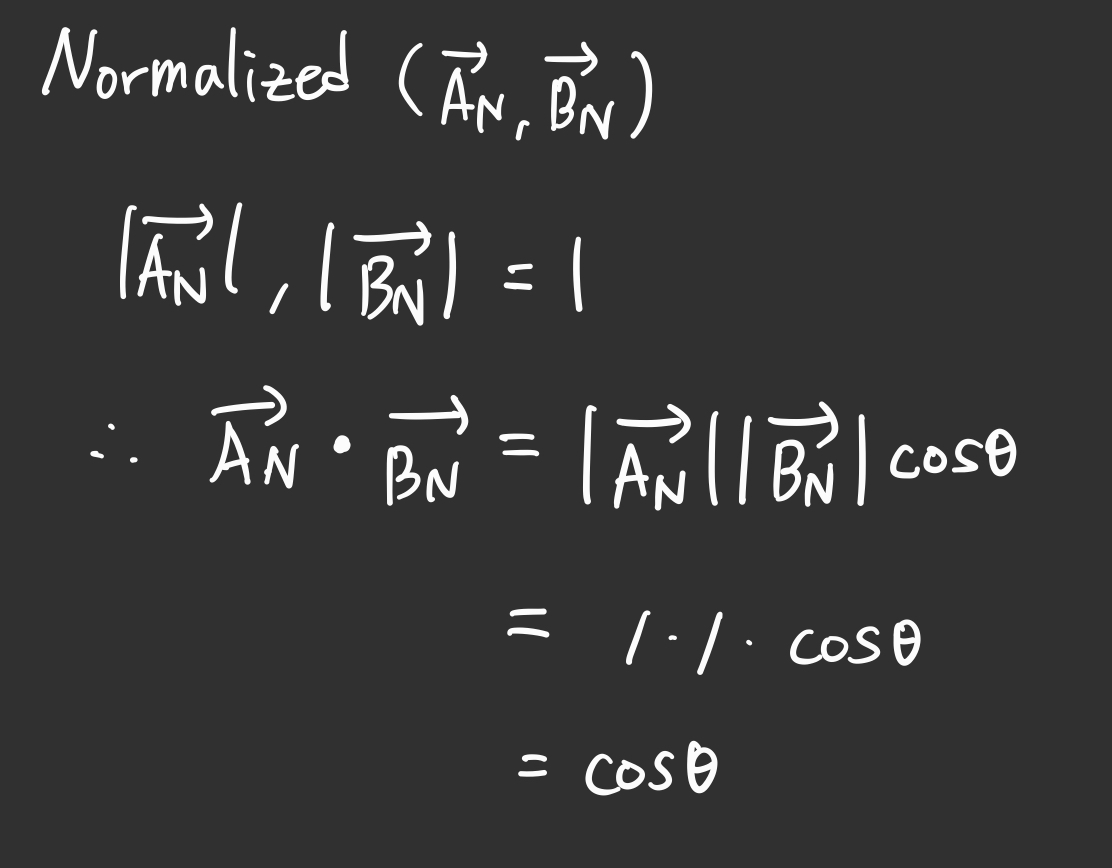 Normalized (A⃗N, B⃗N)
|A⃗N|, |B⃗N| = 1
∴ A⃗N · B⃗N = |A⃗N||B⃗N| cosθ
= 1 · 1 · cosθ
= cosθ